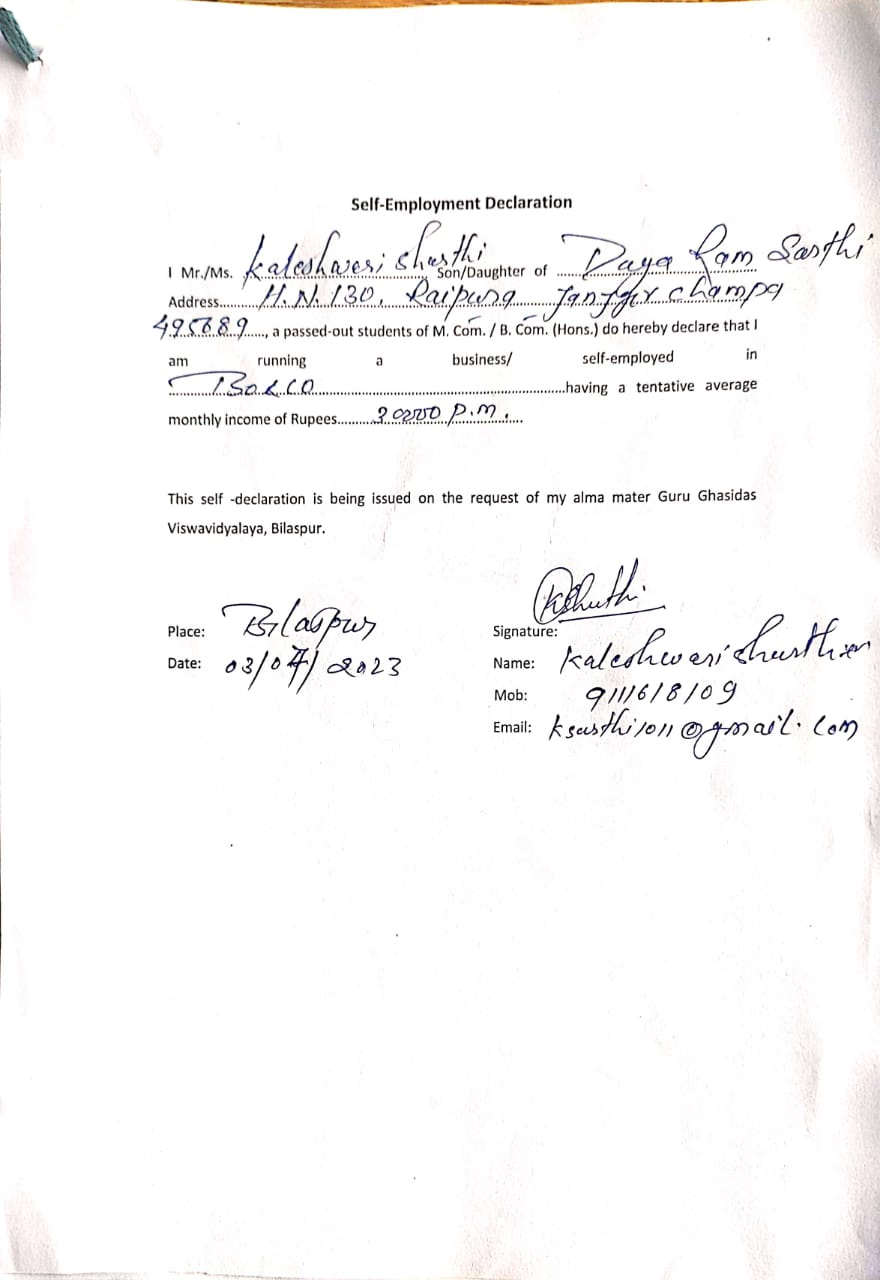 Self-Employment Declaration
I Mr./Ms. Kaleshwari Shasthi Son/Daughter of ..... Daya Ram Sasthi
Address..... H.N. 130, Raipura Janjgir champa
495689....., a passed-out students of M. Com. / B. Com. (Hons.) do hereby declare that I
am running a business/ self-employed in
..... .....having a tentative average
monthly income of Rupees..... P.M. .....
This self -declaration is being issued on the request of my alma mater Guru Ghasidas
Viswavidyalaya, Bilaspur.
Place: Bilaspur
Date: 03/07/2023
Signature:
Name: Kaleshwari
Mob: 9111618109
Email: ksasthi1011@gmail.com